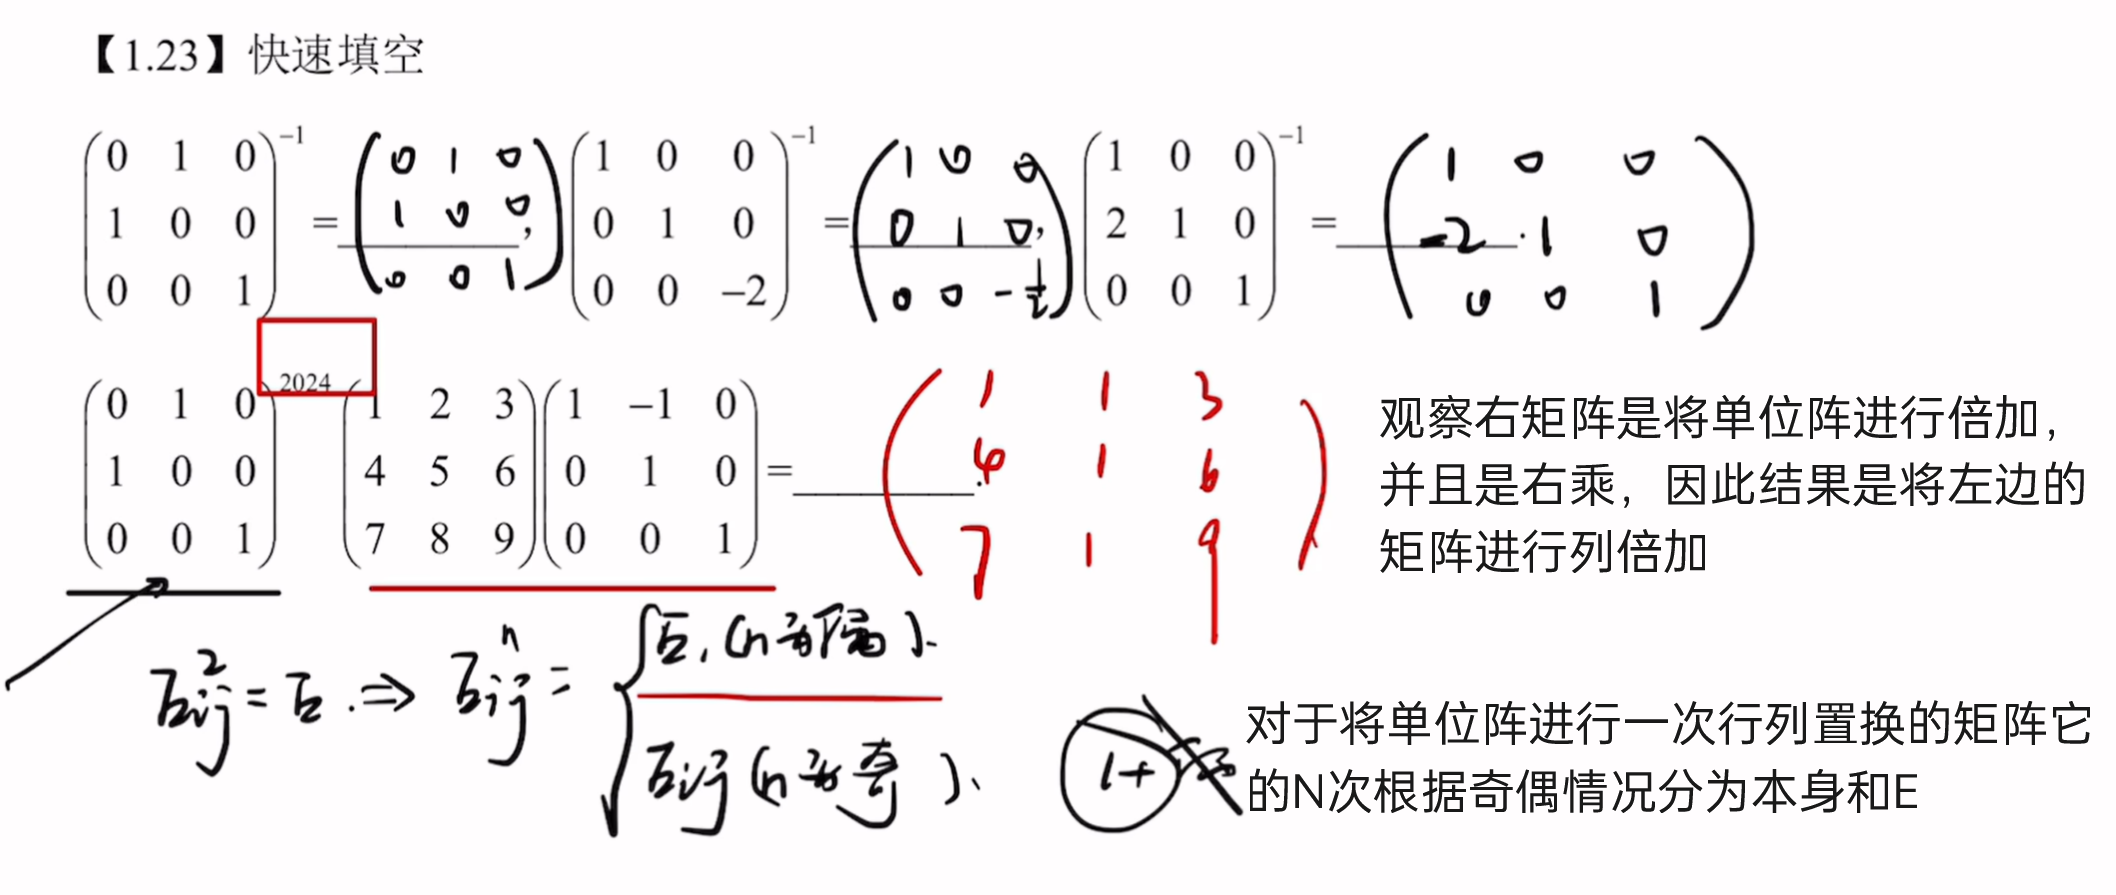 【1.23】快速填空
$\begin{pmatrix} 0 & 1 & 0 \\ 1 & 0 & 0 \\ 0 & 0 & 1 \end{pmatrix}^{-1} = \begin{pmatrix} 0 & 1 & 0 \\ 1 & 0 & 0 \\ 0 & 0 & 1 \end{pmatrix}, \begin{pmatrix} 1 & 0 & 0 \\ 0 & 1 & 0 \\ 0 & 0 & -2 \end{pmatrix}^{-1} = \begin{pmatrix} 1 & 0 & 0 \\ 0 & 1 & 0 \\ 0 & 0 & -\frac{1}{2} \end{pmatrix}, \begin{pmatrix} 1 & 0 & 0 \\ 2 & 1 & 0 \\ 0 & 0 & 1 \end{pmatrix}^{-1} = \begin{pmatrix} 1 & 0 & 0 \\ -2 & 1 & 0 \\ 0 & 0 & 1 \end{pmatrix}.$
$\begin{pmatrix} 0 & 1 & 0 \\ 1 & 0 & 0 \\ 0 & 0 & 1 \end{pmatrix}^{2024} \begin{pmatrix} 1 & 2 & 3 \\ 4 & 5 & 6 \\ 7 & 8 & 9 \end{pmatrix} \begin{pmatrix} 1 & -1 & 0 \\ 0 & 1 & 0 \\ 0 & 0 & 1 \end{pmatrix} = \begin{pmatrix} 1 & 1 & 3 \\ 4 & 1 & 6 \\ 7 & 1 & 9 \end{pmatrix}.$
观察右矩阵是将单位阵进行倍加，
并且是右乘，因此结果是将左边的
矩阵进行列倍加
$E_{ij}^2 = E. \Rightarrow E_{ij}^n = \begin{cases} E, (n为偶). \\ E_{ij} (n为奇). \end{cases}$
对于将单位阵进行一次行列置换的矩阵它
的N次根据奇偶情况分为本身和E